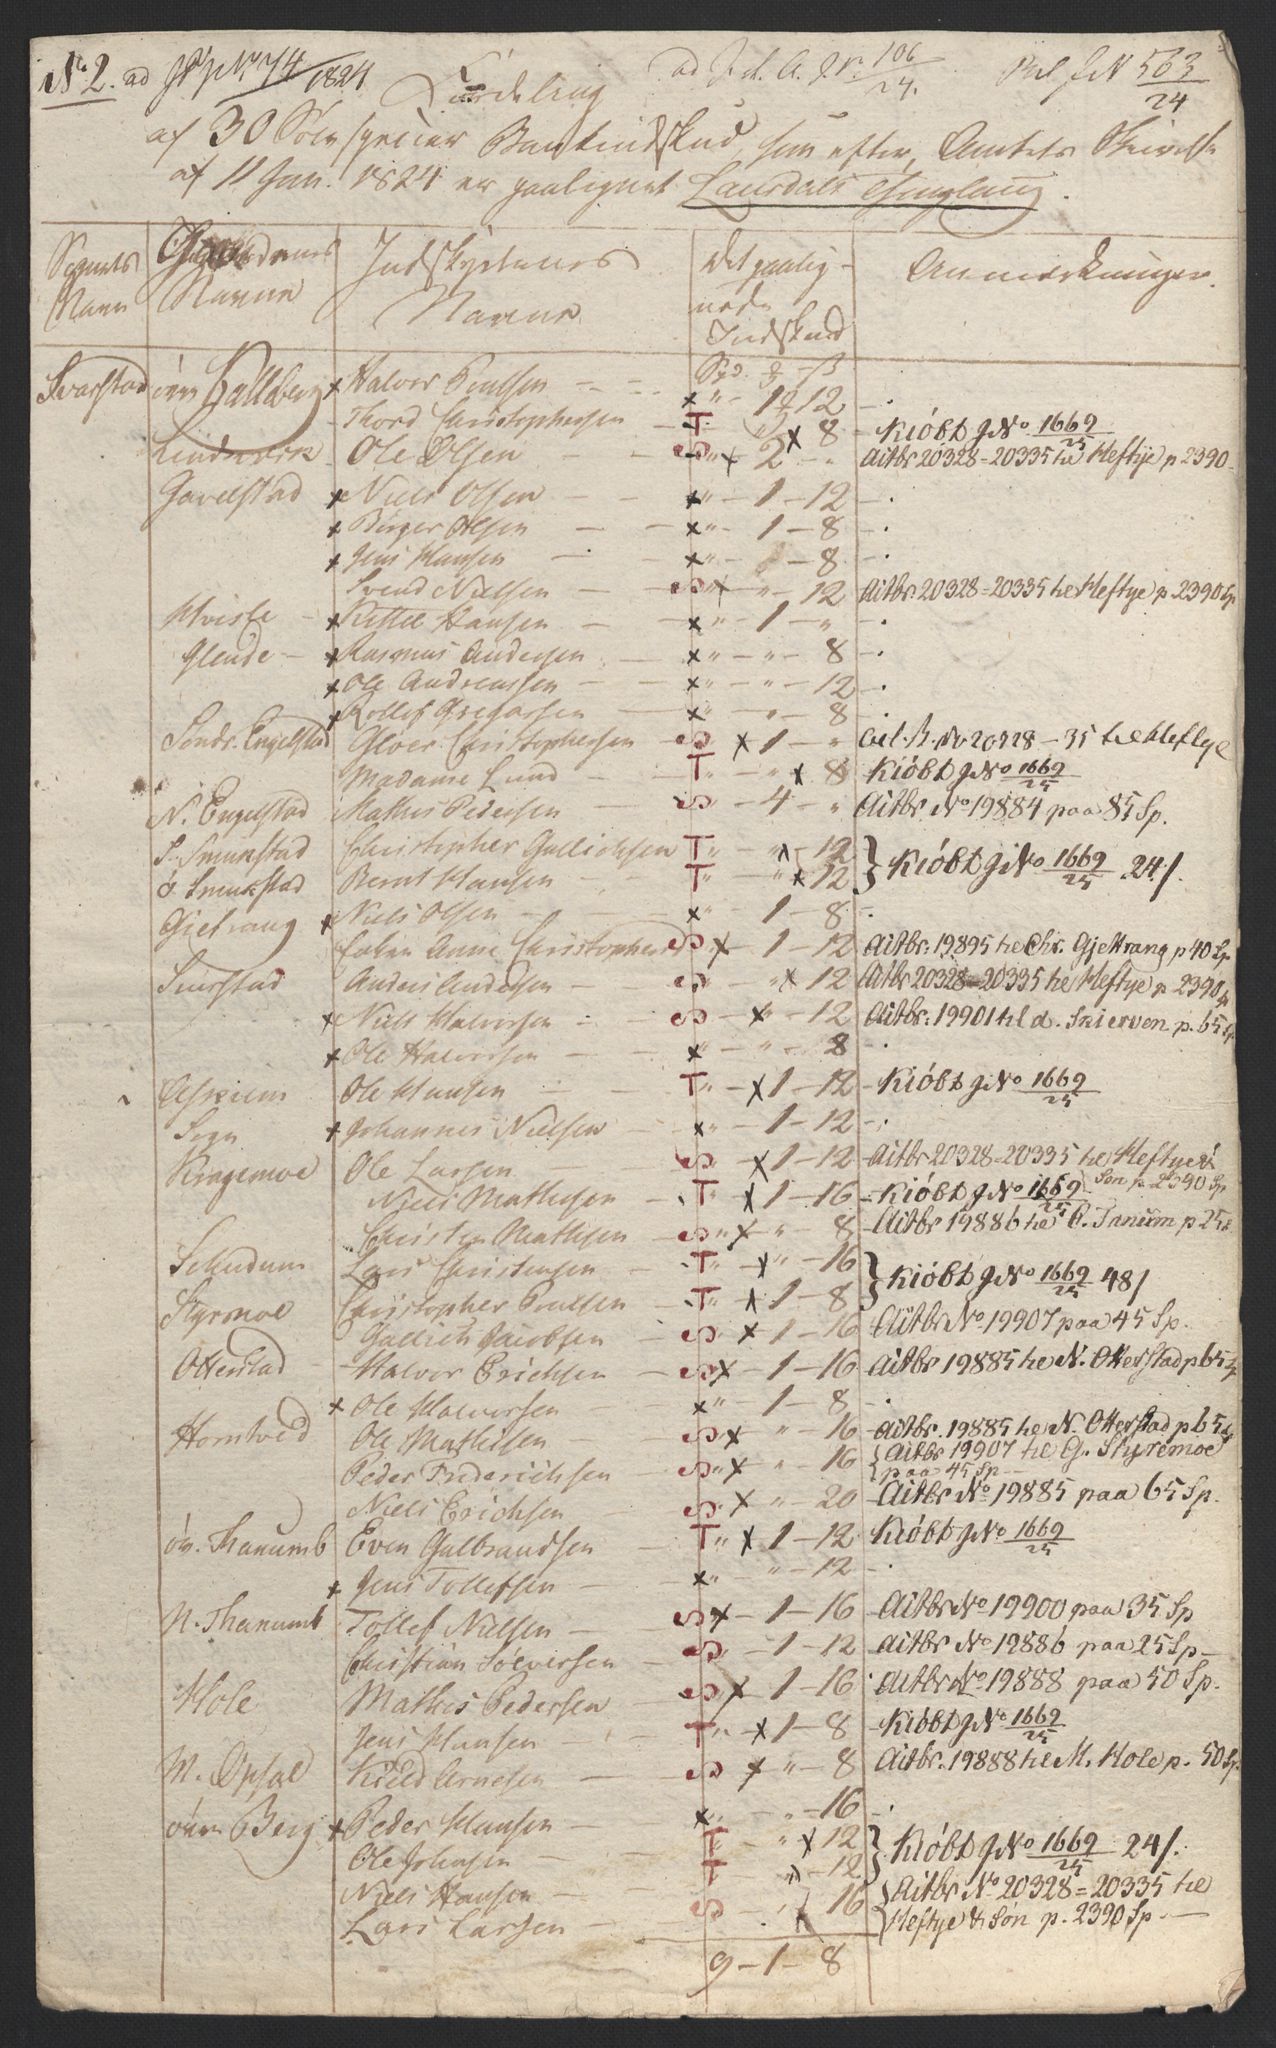 No 2. ad JNo 74/1824
ad J.A. Jr. 106/24.
JN 563/24
Fordeling
af 30 Sølv specier Bankindskud, som efter Amtets Skrivelse
af 11 Jan. 1824 er paalignet Laurdals Thinglaug.
Sognets Navn | Gaardenes Navne | Indskydernes Navne | Det paalignede Indskud | Anmerkninger.
Spd. - ß
Svarstad | övre Hallsberg | x Halvor Poulsen | x " - 1 - 12 | -.
Thord Christophersen | T - x 8 | Kióbt JNo 1669/25
Lindværk | Ole Olsen | S " x 2 - " | Aitbr 20328=20335 til Heftye p 2390
Gavelstad | x Niels Olsen | x " - 1 - 12 | -.
x Birger Olsen | x " - 1 - 8 | -.
x Jens Hansen | x " - 8 | -.
Svend Nielsen | S " x " - 12 | Aitbr. 20328=20335 til Heftye p 2390 Sp
Hviste | x Kittil Hansen | x " - 1 - " | -.
Glende | x Rasmus Andersen | x " - " - 8 | -.
x Ole Andreassen | x " - " - 12 | -.
x Rollef Gregersen | x - " - 8 | -.
Söndr. Engelstad | Gloer Christophersen | S x 1 - " | Ait.B. No 20328-35 til Heftye
Madame Lund | T " - " x 8 | Kióbt JNo 1669/25
N. Engelstad | Mathis Pedersen | S - 4 - " | Aitbr No 19884 paa 85 Sp.
S. Smukstad | Christopher Gullichsen | T " - " x 12 | } Kióbt JNo 1669/25 24/.
ö Smukstad | Bernt Hansen | T - " x 12
Gietrang | x Niels Olsen | x " - 1 - 8 | -.
Enken Anne Christophersd | S x - 1 - 12 | Aitbr: 19895 til Chr. Gjettrang p 40 Sp
Svarstad | Anders Andersen | S " - " x 12 | Aitbr 20328=20335 til Heftye p 2390 Sp
x Niels Halvorsen | S - x " - 12 | Aitbr: 19901 til d. Skierven p. 65 Sp
x Ole Halvorsen | x " - " - 8 | -.
Askiem | Ole Hansen | T " - x 1 - 12 | Kióbt JNo 1669/25
Sogn | x Johannes Nielsen | x " - 1 - 12 | -.
Kragemoe | Ole Larsen | S - x 1 - 12 | Aitbr 20328=20335 til Heftye &
Søn p. 2390 Sp
Niels Mathisen | T " x 1 - 16 | Kióbt JNo 1669/25
Christen Mathisen | S " x " - 8 | Aitbr 19886 til C. Tanum p 25 Sp
Sehudum | Lars Christensen | T " - x " - 16 | } Kióbt JNo 1669/25 48/
Styrmoe | Christopher Poulsen | T " x 1 - 8
Gullich Jacobsen | S " x 1 - 16 | Aitbr No 19907 paa 45 Sp.
Otterstad | Halvor Erichsen | S x - 1 - 16 | Aitbr 19885 til N. Otterstad p 65 Sp
x Ole Halvorsen | x " - 1 - 8 | -.
Hornhved | Ole Mathisen | S x - " - 16 | Aitbr. 19885 til N. Otterstad p 65 Sp
Peder Frederichsen | S " x - " - 16 | { Aitbr 19907 til G. Styremoe
paa 45 Sp -
Niels Erichsen | S x - " - 20 | Aitbr No 19885 paa 65 Sp.
öv. Thanumb | Even Gulbrandsen | T " x 1 - 12 | Kióbt JNo 1669/25
x Jens Tollefsen | x " - " - 12 | -.
N. Thanumb | Tollef Nielsen | S x - 1 - 16 | Aitbr No 19900 paa 35 Sp
Christian Söeversen | S - 1 - 12 | Aitbr No 19886 paa 25 Sp -
Hole | Mathis Pedersen | S x - 1 - 16 | Aitbr No 19888 paa 50 Sp.
Jens Hansen | T " x 1 - 8 | Kióbt JNo 1669/25
M. Opsal | Kield Arnesen | S x " - 8 | Aitbr. 19888 til M. Hole p. 50 Sp.
övre Berg | x Peder Hansen | x " - " - 16 | -.
Ole Johnsen | T - " x 12 | } Kióbt JNo 1669/25 24/.
Niels Hansen | T - " - 12
Lars Larsen | S - " 16 | { Aitbr No 20328=20335 til
Heftye & Søn p. 2390 Sp. -
9 - 1 - 8